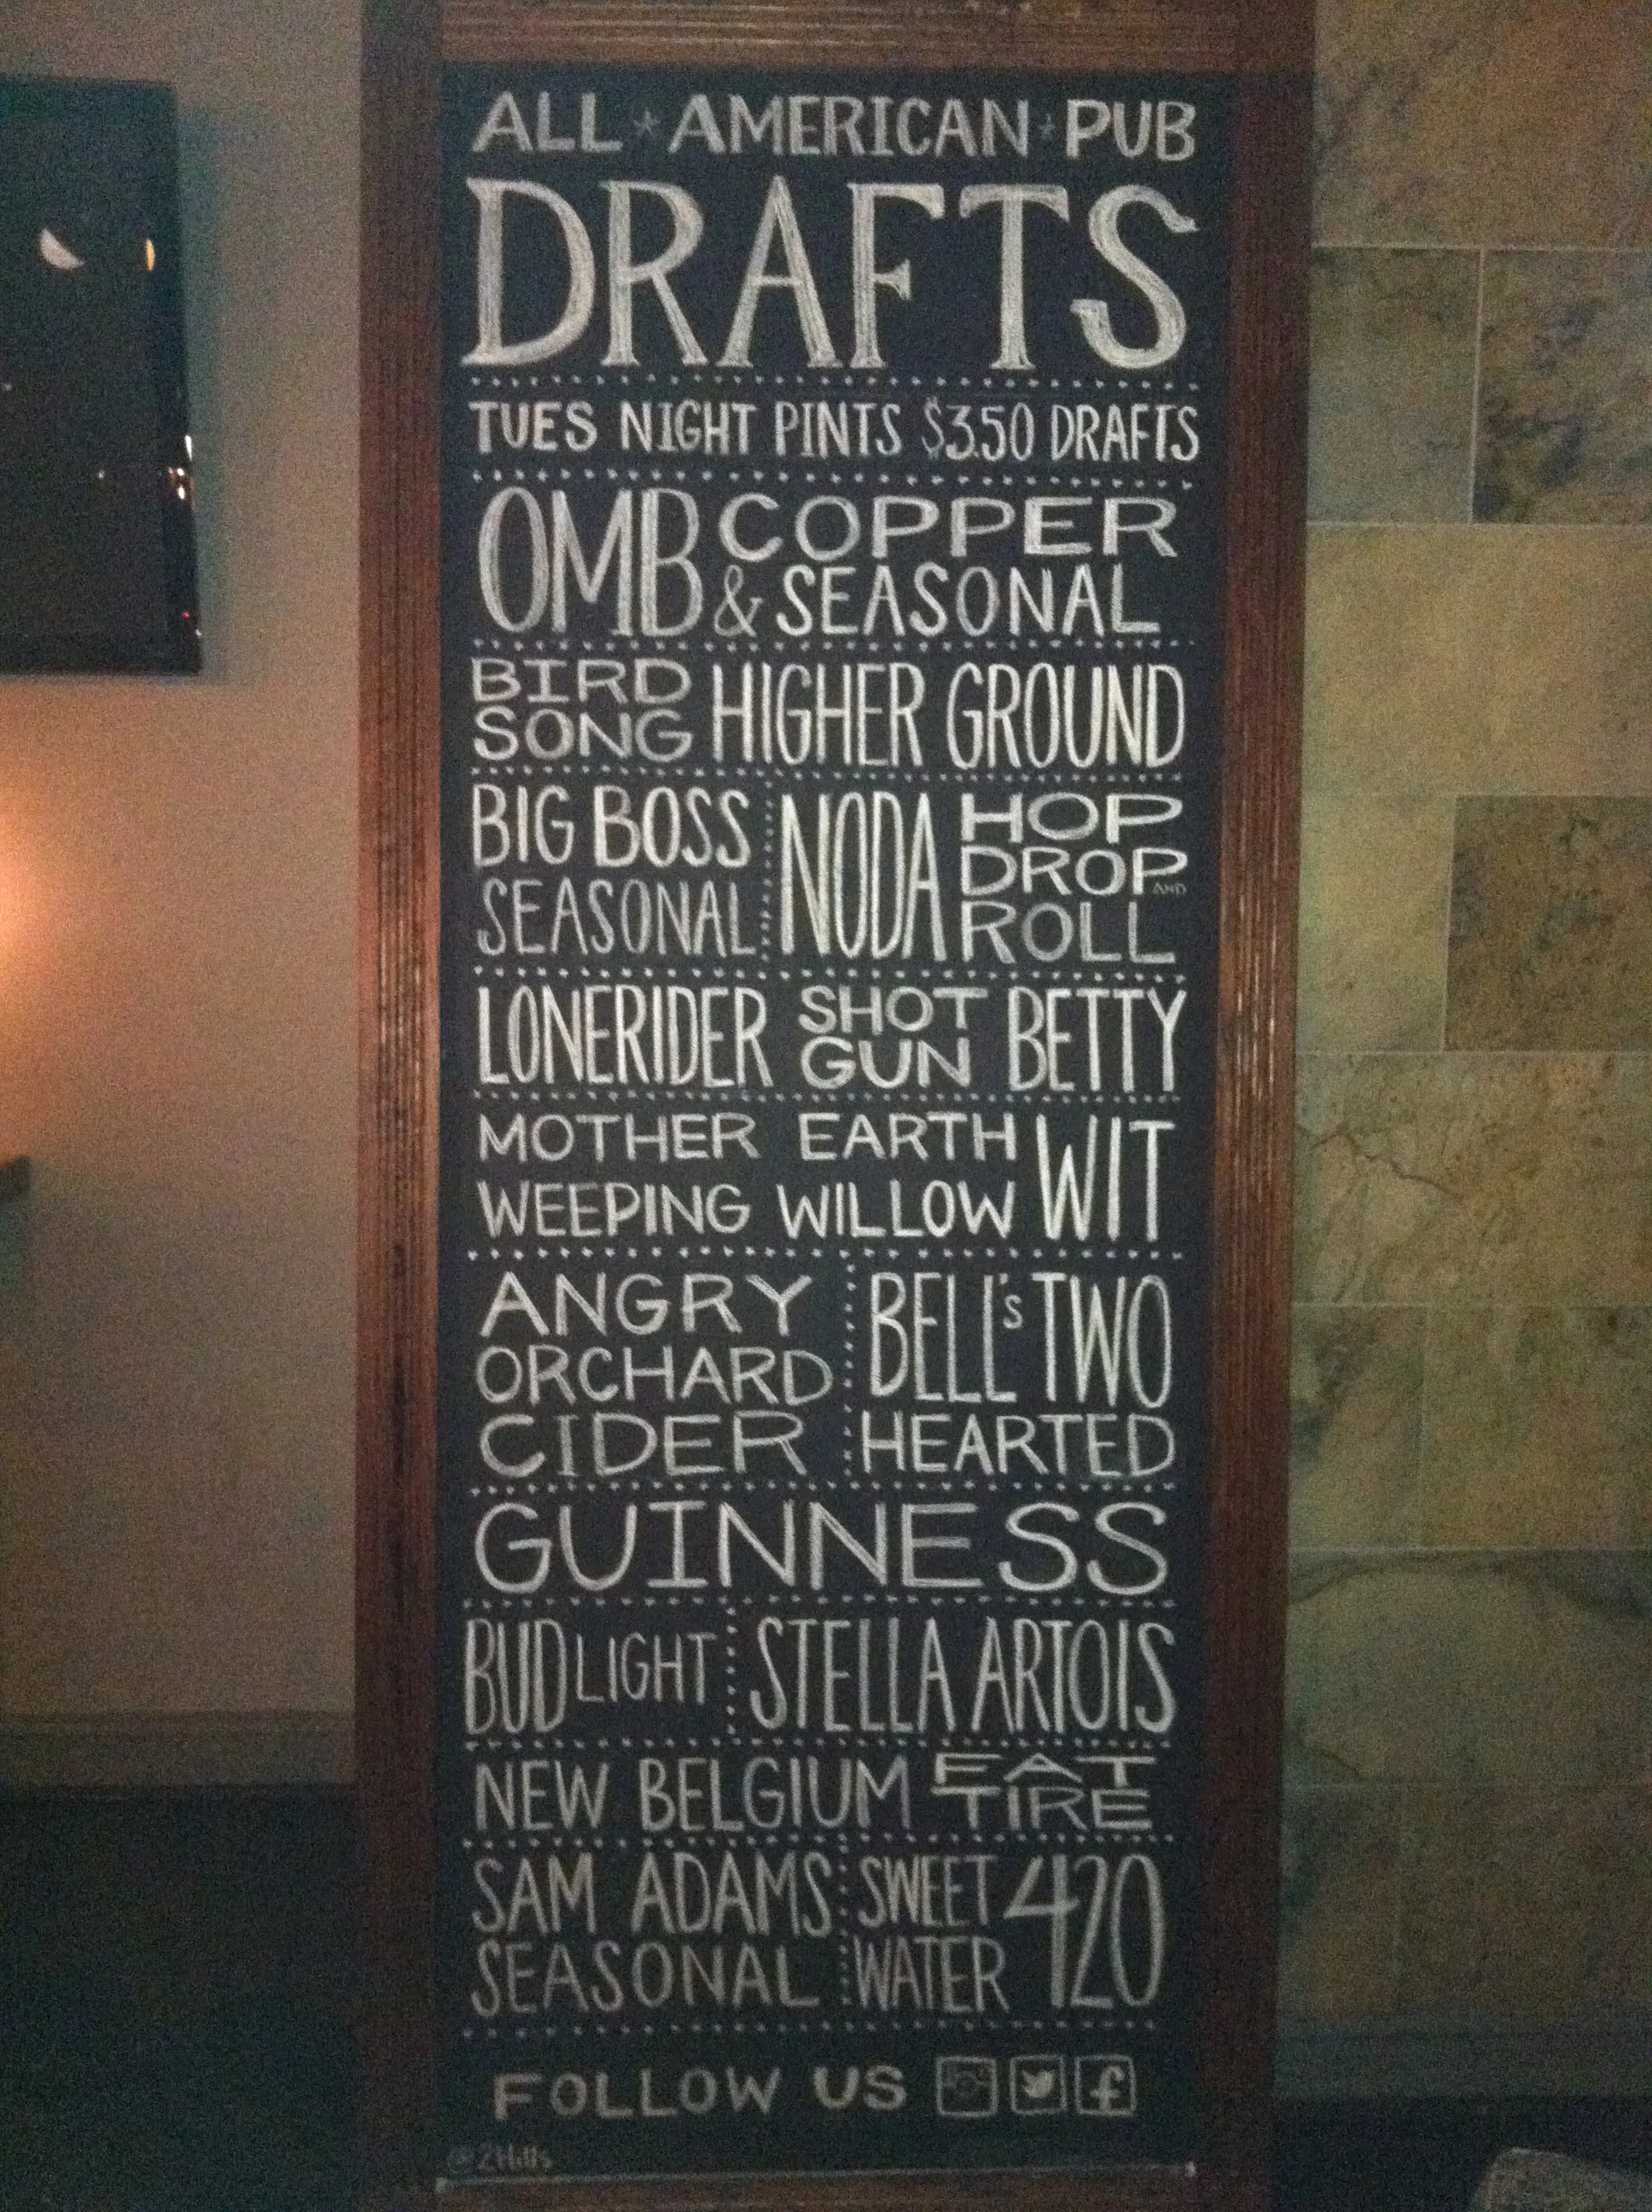 ALL * AMERICAN * PUB
DRAFTS
TUES NIGHT PINTS $3.50 DRAFTS
OMB COPPER
& SEASONAL
BIRD
SONG HIGHER GROUND
BIG BOSS
SEASONAL
NODA HOP
DROP AND
ROLL
LONERIDER SHOT
GUN BETTY
MOTHER EARTH
WEEPING WILLOW WIT
ANGRY
ORCHARD
CIDER
BELL'S TWO
HEARTED
GUINNESS
BUD LIGHT
STELLA ARTOIS
NEW BELGIUM FAT
TIRE
SAM ADAMS
SEASONAL
SWEET
WATER 420
FOLLOW US f
@2Hills